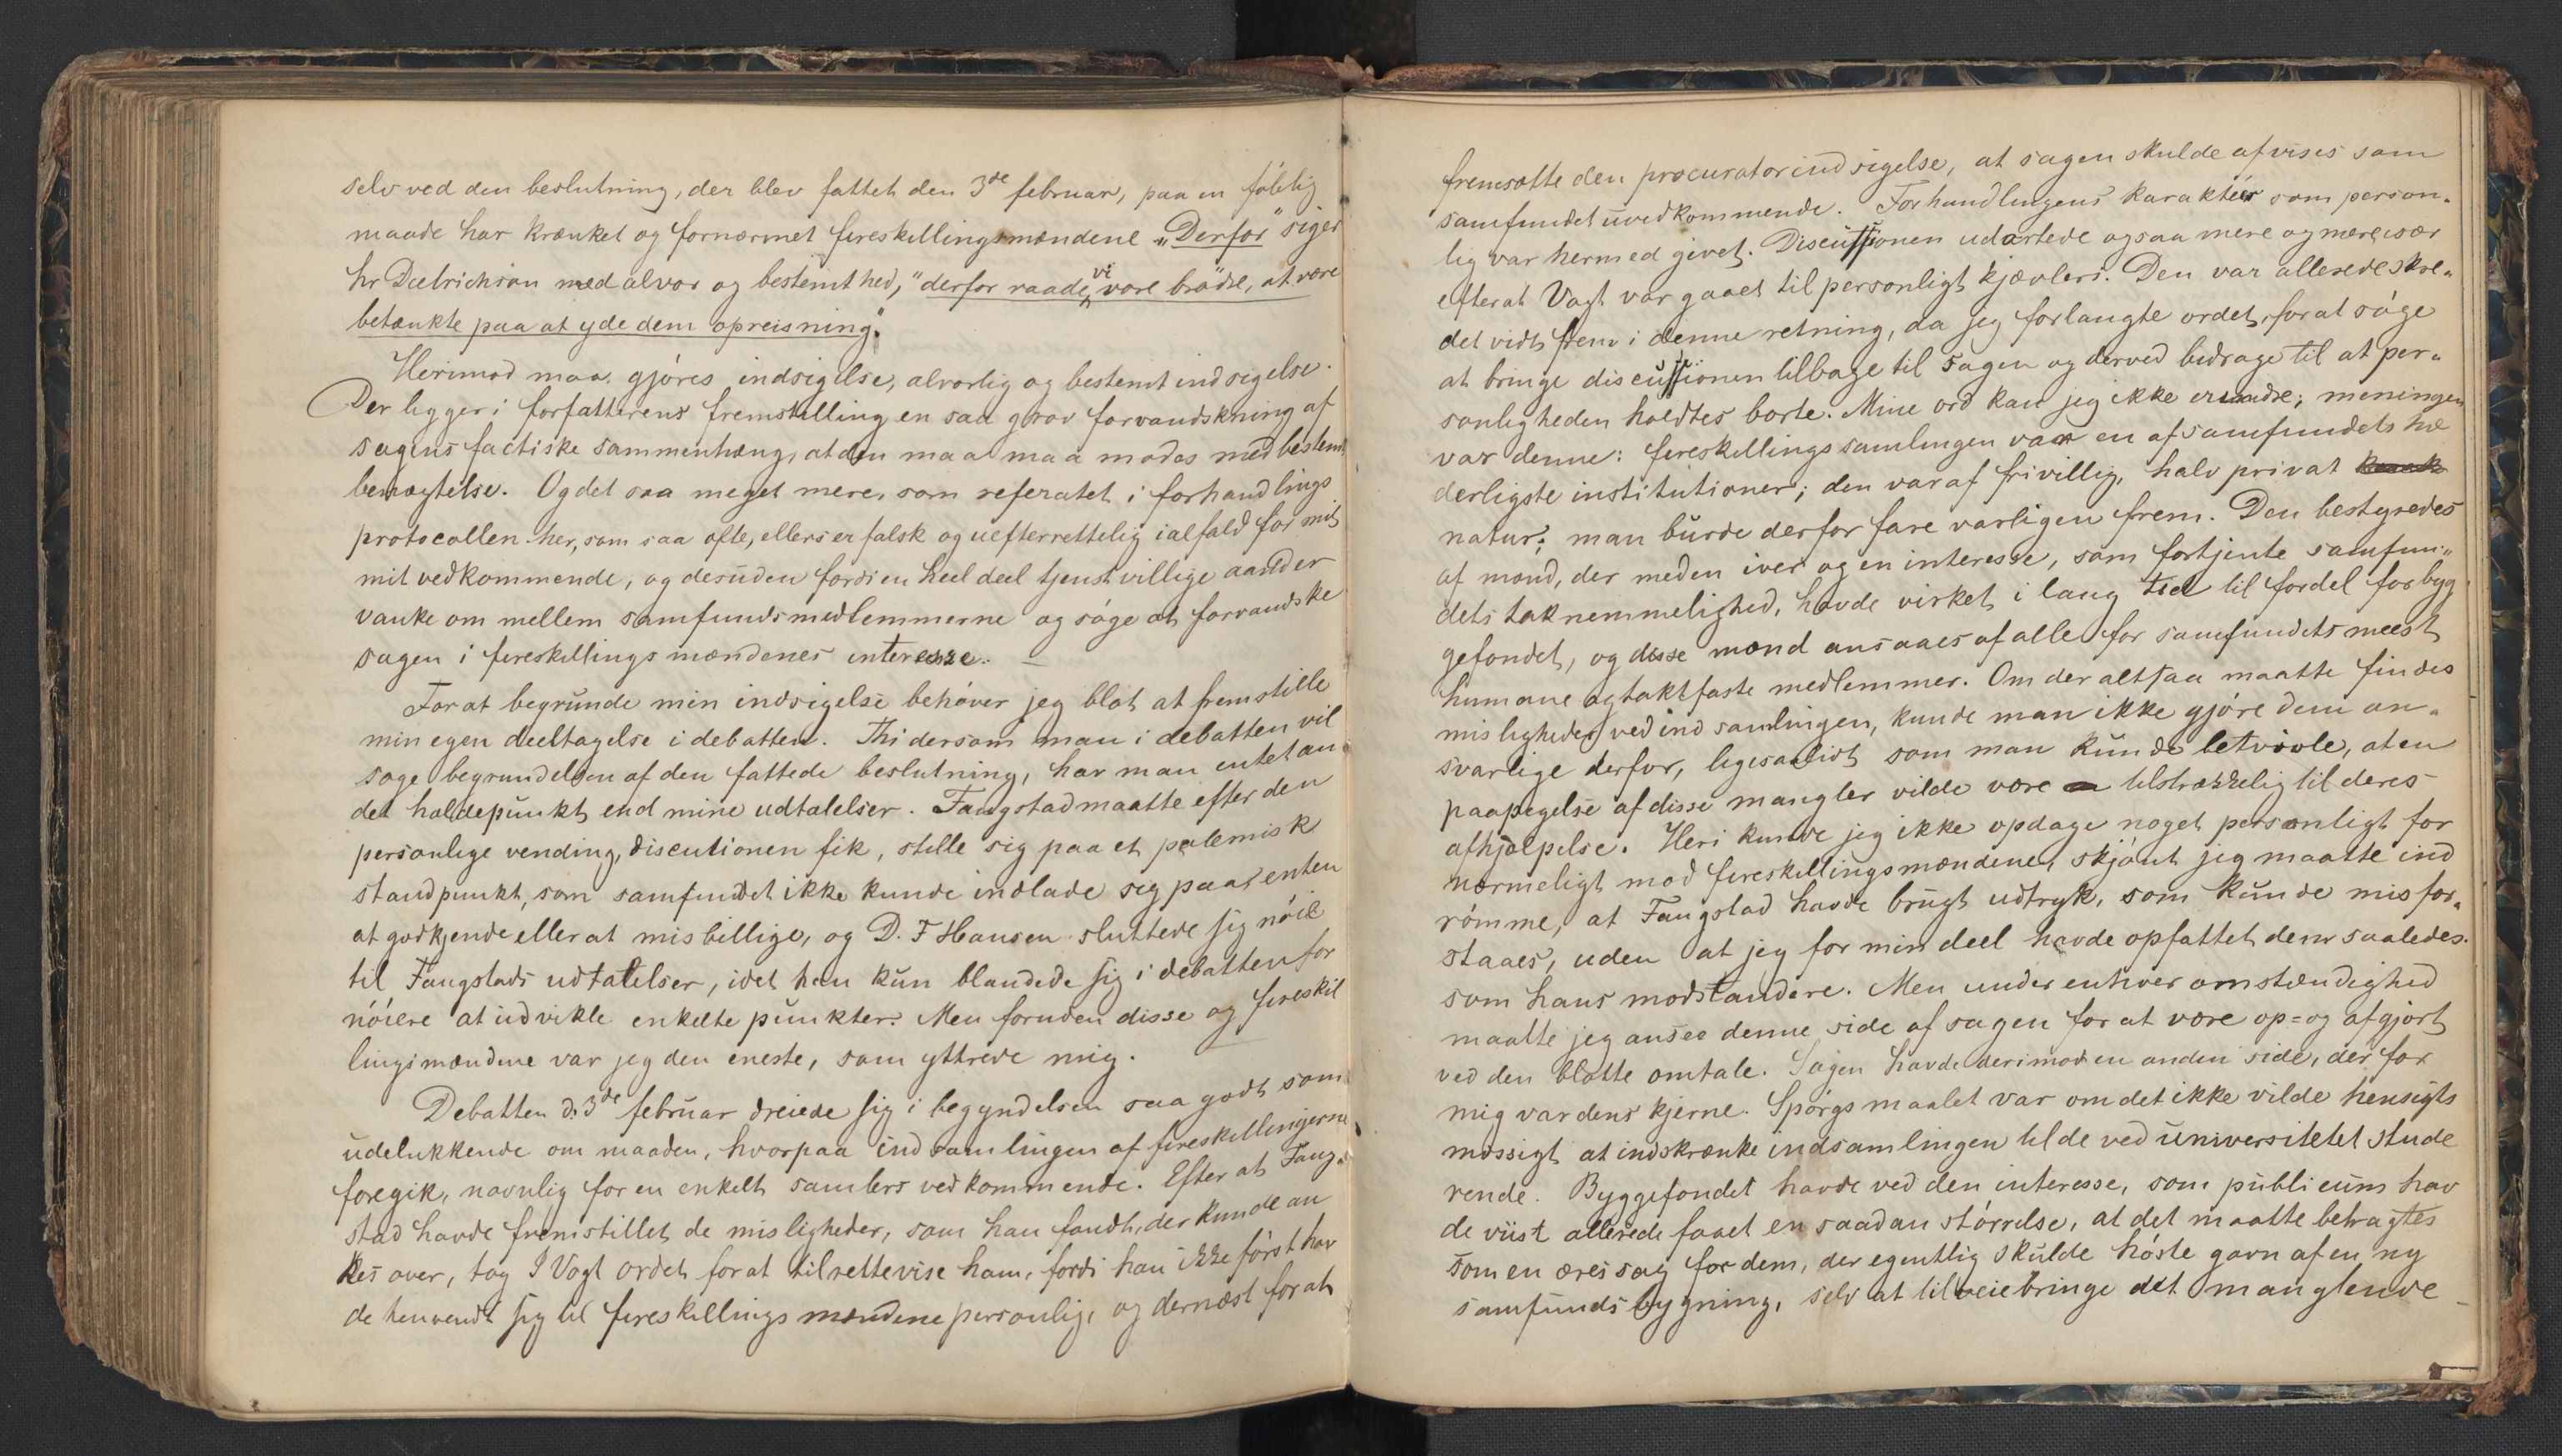 selv ved den beslutning, der blev fattet den 3de februar, paa en følelig
maade har krænket og fornærmet fireskillingsmændene. "Derfor" siger
hr Dietrichson med alvor og bestemthed, "derfor raade vi vore brødre, at være
betænkte paa at yde dem opreisning".
Herimod maa gjøres indsigelse, alvorlig og bestemt indsigelse.
Der ligger i forfatterens fremstilling en saa grov forvandskning af
sagens factiske sammenhæng, at den maa maa mødes med bestemt
benægtelse. Og det saa meget mere, som referatet i forhandlings
protocollen her, som saa ofte, ellers er falsk og uefterrettelig ialfald for mit
mit vedkommende, og desuden fordi en heel deel tjenstvillige aander
vanke om mellem samfundsmedlemmerne og søge at forvandske
sagen i fireskillingsmændenes interesse. —
For at begrunde min indsigelse behøver jeg blot at fremstille
min egen deeltagelse i debatten. Thi dersom man i debatten vil
søge begrundelsen af den fattede beslutning, har man intet an
det holdepunkt end mine udtalelser. Fangstad maatte efter den
personlige vending, discutionen fik, stille sig paa et polemisk
standpunkt, som samfundet ikke kunde indlade sig paa enten
at godkjende eller at misbillige, og D. F Hansen sluttede sig nöie
til Fangstads udtalelser, idet han kun blandede sig i debatten for
nöiere at udvikle enkelte punkter. Men foruden disse og fireskil
lingsmændene var jeg den eneste, som yttrede mig.
Debatten d. 3de februar dreiede sig i begyndelsen saa godt som
udelukkende om maaden, hvorpaa indsamlingen af fireskillingerne
foregik, navnlig for en enkelt samlers vedkommende. Efter at Fang-
stad havde fremstillet de misligheder, som han fandt, der kunde an
kes over, tog J Vogt ordet for at tilrettevise ham, fordi han ikke først hav
de henvendt sig til fireskillingsmændene personlig, og dernæst for at
fremsætte den procuratorindsigelse, at sagen skulde afvises som
samfundet uvedkommende. Forhandlingens karakteer som person-
lig var hermed givet. Discussionen udartede ogsaa mere og mere især
efterat Vogt var gaaet til personligt kjævleri. Den var allerede skre-
det vidt frem i denne retning, da jeg forlangte ordet, for at söge
at bringe discussionen tilbage til sagen og derved bidrage til at per-
sonligheden holdtes borte. Mine ord kan jeg ikke erindre; meningen
var denne: fireskillingssamlingen var en af samfundets hæ
derligste institutioner; den var af frivillig, halv privat
natur; man burde derfor fare varligen frem. Den bestyredes
af mænd, der med en iver og en interesse, som fortjente samfun-
dets taknemmelighed, havde virket i lang tid til fordel for byg
gefondet, og disse mænd ansaaes af alle for samfundets meest
humane og taktfaste medlemmer. Om der altsaa maatte findes
misligheder ved indsamlingen, kunde man ikke gjöre dem an-
svarlige derfor, ligesaalidt som man kunde betvivle, at en
paapegelse af disse mangler vilde være tilstrækkelig til deres
afhjælpelse. Heri kunde jeg ikke opdage noget personligt for
nærmeligt mod fireskillingsmændene, skjönt jeg maatte ind
römme, at Fangstad havde brugt udtryk, som kunde misfor-
staaes, uden at jeg for min deel havde opfattet dem saaledes.
som hans modstandere. Men under enhver omstændighed
maatte jeg ansee denne side af sagen for at være op= og afgjort
ved den blotte omtale. Sagen havde derimod en anden side, der for
mig var dens kjerne. Spörgsmaalet var om det ikke vilde hensigts
mæssigt at indskrænke indsamlingen til de ved universitetet stude
rende. Byggefondet havde ved den interesse, som publicum hav
de viist allerede faaet en saadan störrelse, at det maatte betragtes
som en æressag for dem, der egentlig skulde höste gavn af en ny
samfundsbygning, selv at tilveiebringe det manglende